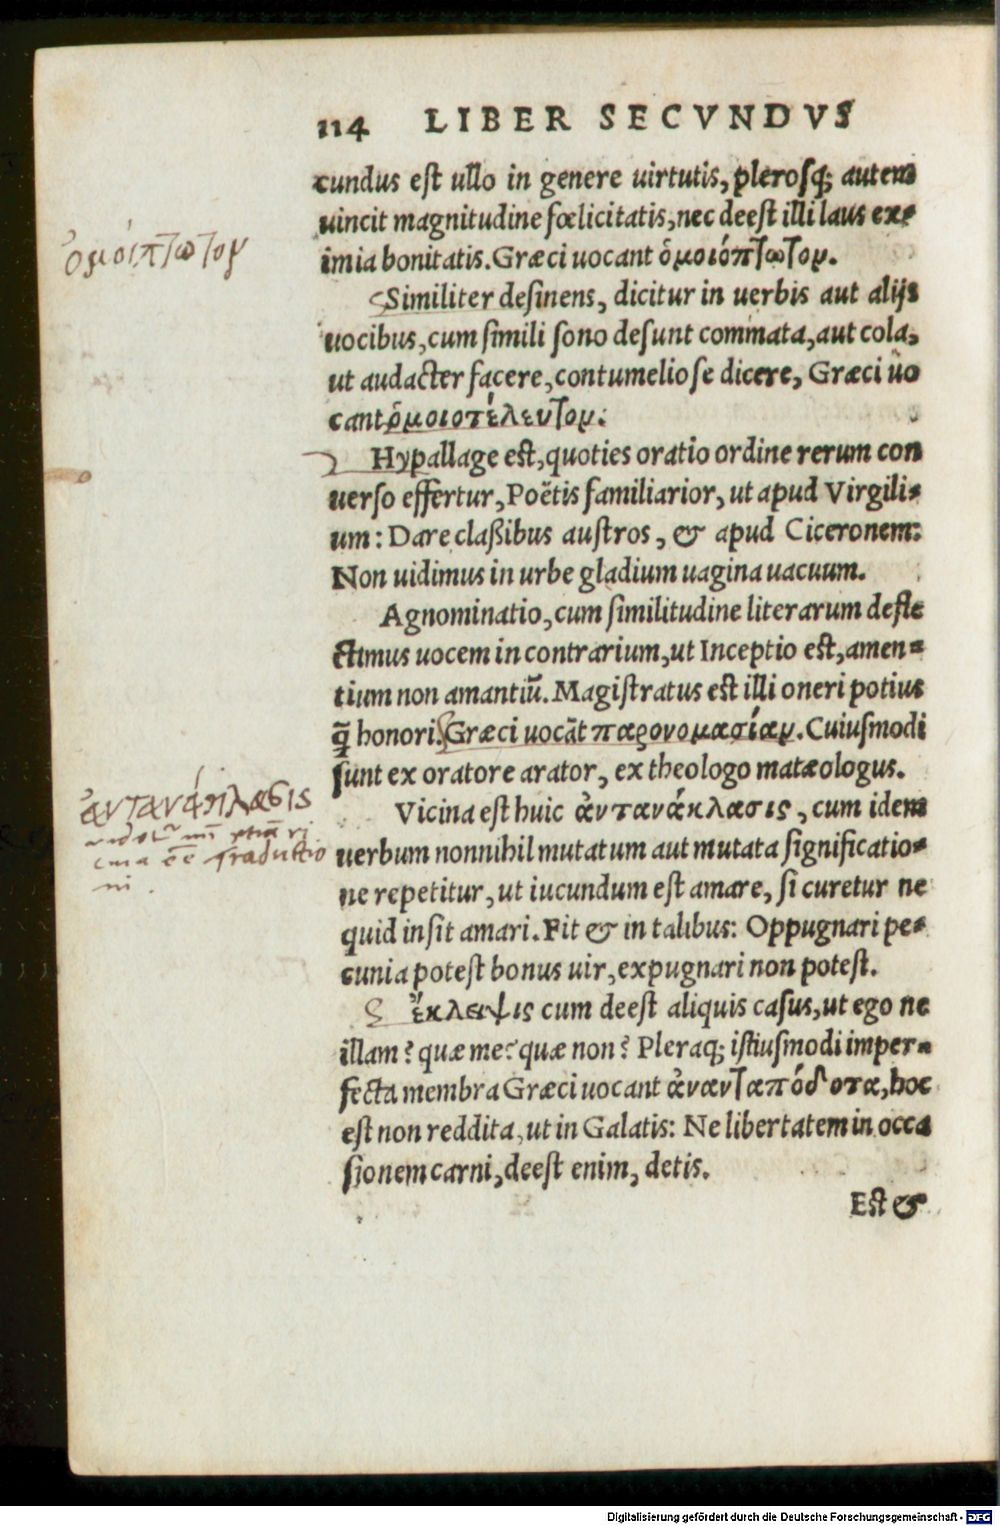 114 LIBER SECVNDVS
cundus est ullo in genere uirtutis, plerosq; autem
uincit magnitudine fœlicitatis, nec deest illi laus ex=
imia bonitatis. Græci uocant ὁμοιόπτωτον.
ὁμοιπτωτον
Similiter desinens, dicitur in uerbis aut alijs
uocibus, cum simili sono desunt commata, aut cola,
ut audacter facere, contumeliose dicere, Græci uo
cant ὁμοιοτέλευτον.
Hypallage est, quoties oratio ordine rerum con
uerso effertur, Poëtis familiarior, ut apud Virgili=
um: Dare claßibus austros, & apud Ciceronem:
Non uidimus in urbe gladium uagina uacuum.
Agnominatio, cum similitudine literarum defle
ctimus uocem in contrarium, ut Inceptio est, amen=
tium non amantiū. Magistratus est illi oneri potius
q̃ honori. Græci uocāt παρονομασίαν. Cuiusmodi
sunt ex oratore arator, ex theologo matæologus.
Vicina est huic ἀντανάκλασις, cum idem
ἀντανάκλασις
uerbum nonnihil mutatum aut mutata significatio=
traductio
ni.
ne repetitur, ut iucundum est amare, si curetur ne
quid insit amari. Fit & in talibus: Oppugnari pe=
cunia potest bonus uir, expugnari non potest.
ἔκλειψις cum deest aliquis casus, ut ego ne
illam? quæ me? quæ non? Pleraq; istiusmodi imper=
fecta membra Græci uocant ἀνανταπόδοτα, hoc
est non reddita, ut in Galatis: Ne libertatem in occa
sionem carni, deest enim, detis.
Est &
Digitalisierung gefördert durch die Deutsche Forschungsgemeinschaft - DFG